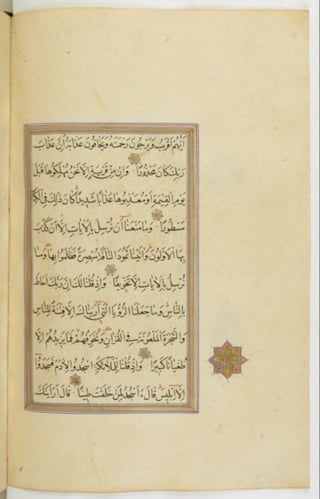 اَيُّهُمْ اَقْرَبُ وَيَرْجُونَ رَحْمَتَهُ وَيَخَافُونَ عَذَابَهُ اِنَّ عَذَابَ
رَبِّكَ كَانَ مَحْذُورًا وَاِنْ مِنْ قَرْيَةٍ اِلَّا نَحْنُ مُهْلِكُوهَا قَبْلَ
يَوْمِ الْقِيٰمَةِ اَوْ مُعَذِّبُوهَا عَذَابًا شَدِيدًا كَانَ ذٰلِكَ فِى الْكِتَابِ
مَسْطُورًا وَمَا مَنَعَنَا اَنْ نُرْسِلَ بِالْاٰيَاتِ اِلَّا اَنْ كَذَّبَ
بِهَا الْاَوَّلُونَ وَاٰتَيْنَا ثَمُودَ النَّاقَةَ مُبْصِرَةً فَظَلَمُوا بِهَا وَمَا
نُرْسِلُ بِالْاٰيَاتِ اِلَّا تَخْوِيفًا وَاِذْ قُلْنَا لَكَ اِنَّ رَبَّكَ اَحَاطَ
بِالنَّاسِ وَمَا جَعَلْنَا الرُّؤْيَا الَّتِى اَرَيْنَاكَ اِلَّا فِتْنَةً لِلنَّاسِ
وَالشَّجَرَةَ الْمَلْعُونَةَ فِى الْقُرْاٰنِ وَنُخَوِّفُهُمْ فَمَا يَزِيدُهُمْ اِلَّا
طُغْيَانًا كَبِيرًا وَاِذْ قُلْنَا لِلْمَلٰئِكَةِ اسْجُدُوا لِاٰدَمَ فَسَجَدُوا
اِلَّا اِبْلِيسَ قَالَ ءَاَسْجُدُ لِمَنْ خَلَقْتَ طِينًا قَالَ اَرَاَيْتَكَ